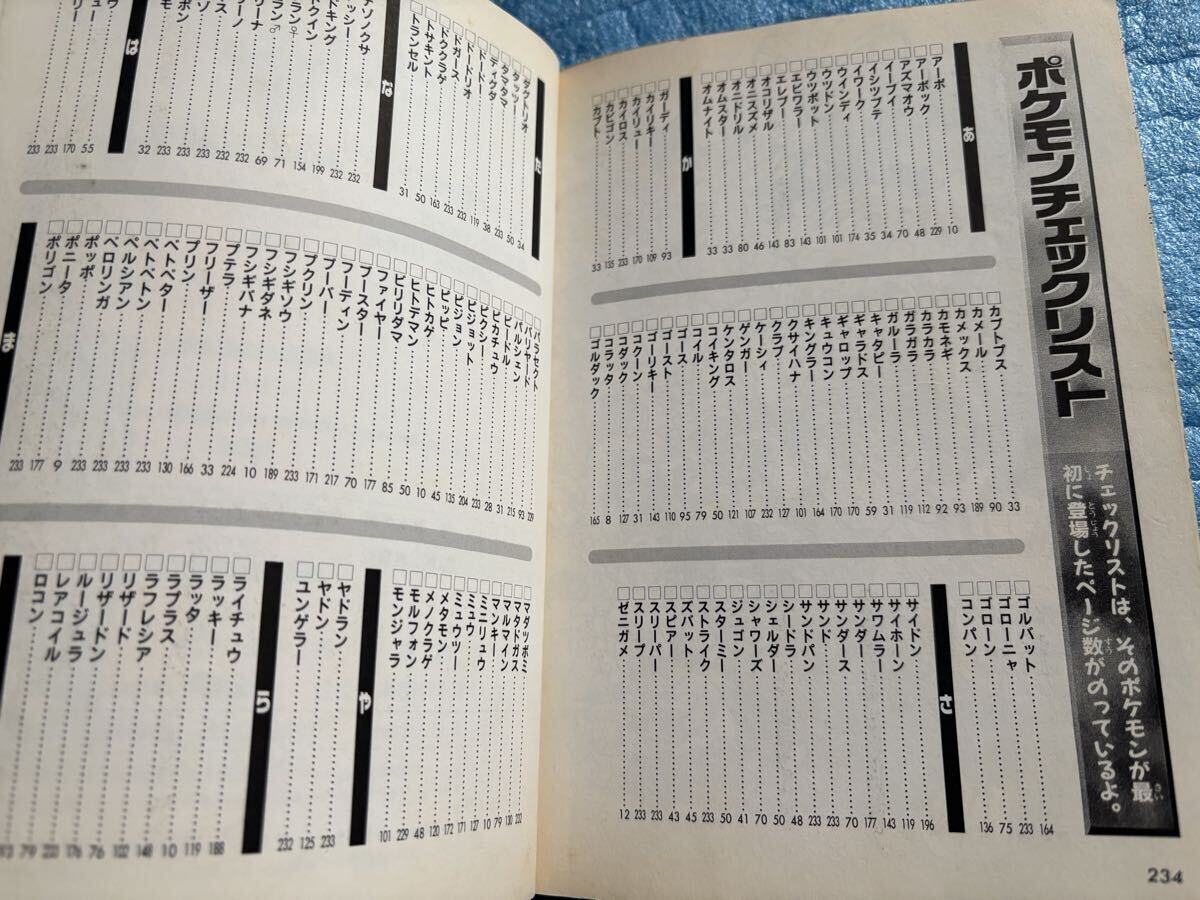 ポケモンチェックリスト
チェックリストは、そのポケモンが最
さい
初に登場したページ数がのっているよ。
しょ とうじょう すう
あ
□アーボ……10
□アーボック……229
□アズマオウ……48
□イーブイ……70
□イシツブテ……34
□イワーク……35
□ウインディ……174
□ウツドン……101
□ウツボット……101
□エビワラー……143
□エレブー……83
□オコリザル……143
□オニスズメ……46
□オニドリル……80
□オムスター……33
□オムナイト……33
か
□ガーディ……93
□カイリキー……109
□カイリュー……170
□カイロス……233
□カビゴン……135
□カブト……33
□カブトプス……33
□カメール……90
□カメックス……189
□カモネギ……93
□カラカラ……92
□ガラガラ……112
□ガルーラ……119
□キャタピー……31
□ギャラドス……59
□ギャロップ……170
□キュウコン……170
□キングラー……164
□クサイハナ……101
□クラブ……127
□ケーシィ……232
□ゲンガー……107
□ケンタロス……121
□コイキング……50
□コイル……79
□ゴース……95
□ゴースト……110
□ゴーリキー……143
□コクーン……31
□コダック……127
□コラッタ……8
□ゴルダック……165
□ゴルバット……164
□ゴローニャ……233
□ゴローン……75
□コンパン……136
さ
□サイドン……196
□サイホーン……119
□サワムラー……143
□サンダー……177
□サンダース……70
□サンド……233
□サンドパン……233
□シードラ……48
□シェルダー……50
□シャワーズ……70
□ジュゴン……41
□スターミー……50
□ストライク……233
□ズバット……45
□スピアー……43
□スリーパー……233
□スリープ……233
□ゼニガメ……12
234
た
□ダグトリオ……34
□タッツー……50
□タマタマ……233
□ディグダ……38
□ドードー……119
□ドードリオ……232
□ドガース……233
□ドククラゲ……163
□トサキント……50
□トランセル……31
な
ナゾノクサ……232
ッシー……232
ドキング……199
ドクイン……154
ラン♀……71
ラン♂……69
リーナ……232
ーノ……232
ス……233
ゾ……233
ポン……233
モ……32
は
ウ……55
ュー……170
リー……233
233
□パラセクト……229
□バリヤード……93
□パルシェン……215
□ビードル……31
□ピカチュウ……28
□ピクシー……233
□ピジョット……204
□ピジョン……135
□ピッピ……45
□ヒトカゲ……10
□ヒトデマン……50
□ビリリダマ……85
□ファイヤー……177
□ブースター……70
□フーディン……217
□ブーバー……171
□プクリン……233
□フシギソウ……189
□フシギダネ……10
□フシギバナ……224
□プテラ……33
□フリーザー……166
□プリン……130
□ベトベター……233
□ベトベトン……233
□ペルシアン……233
□ベロリンガ……233
□ポッポ……9
□ポニータ……177
□ポリゴン……233
ま
□マダツボミ……232
□マタドガス……130
□マルマイン……79
□マンキー……10
□ミニリュウ……127
□ミュウ……171
□ミュウツー……172
□メタモン……120
□メノクラゲ……48
□モルフォン……229
□モンジャラ……101
や
□ヤドラン……233
□ヤドン……125
□ユンゲラー……232
ら
□ライチュウ……188
□ラッキー……119
□ラッタ……10
□ラプラス……148
□ラフレシア……102
□リザード……76
□リザードン……176
□ルージュラ……233
□レアコイル……79
□ロコン……93